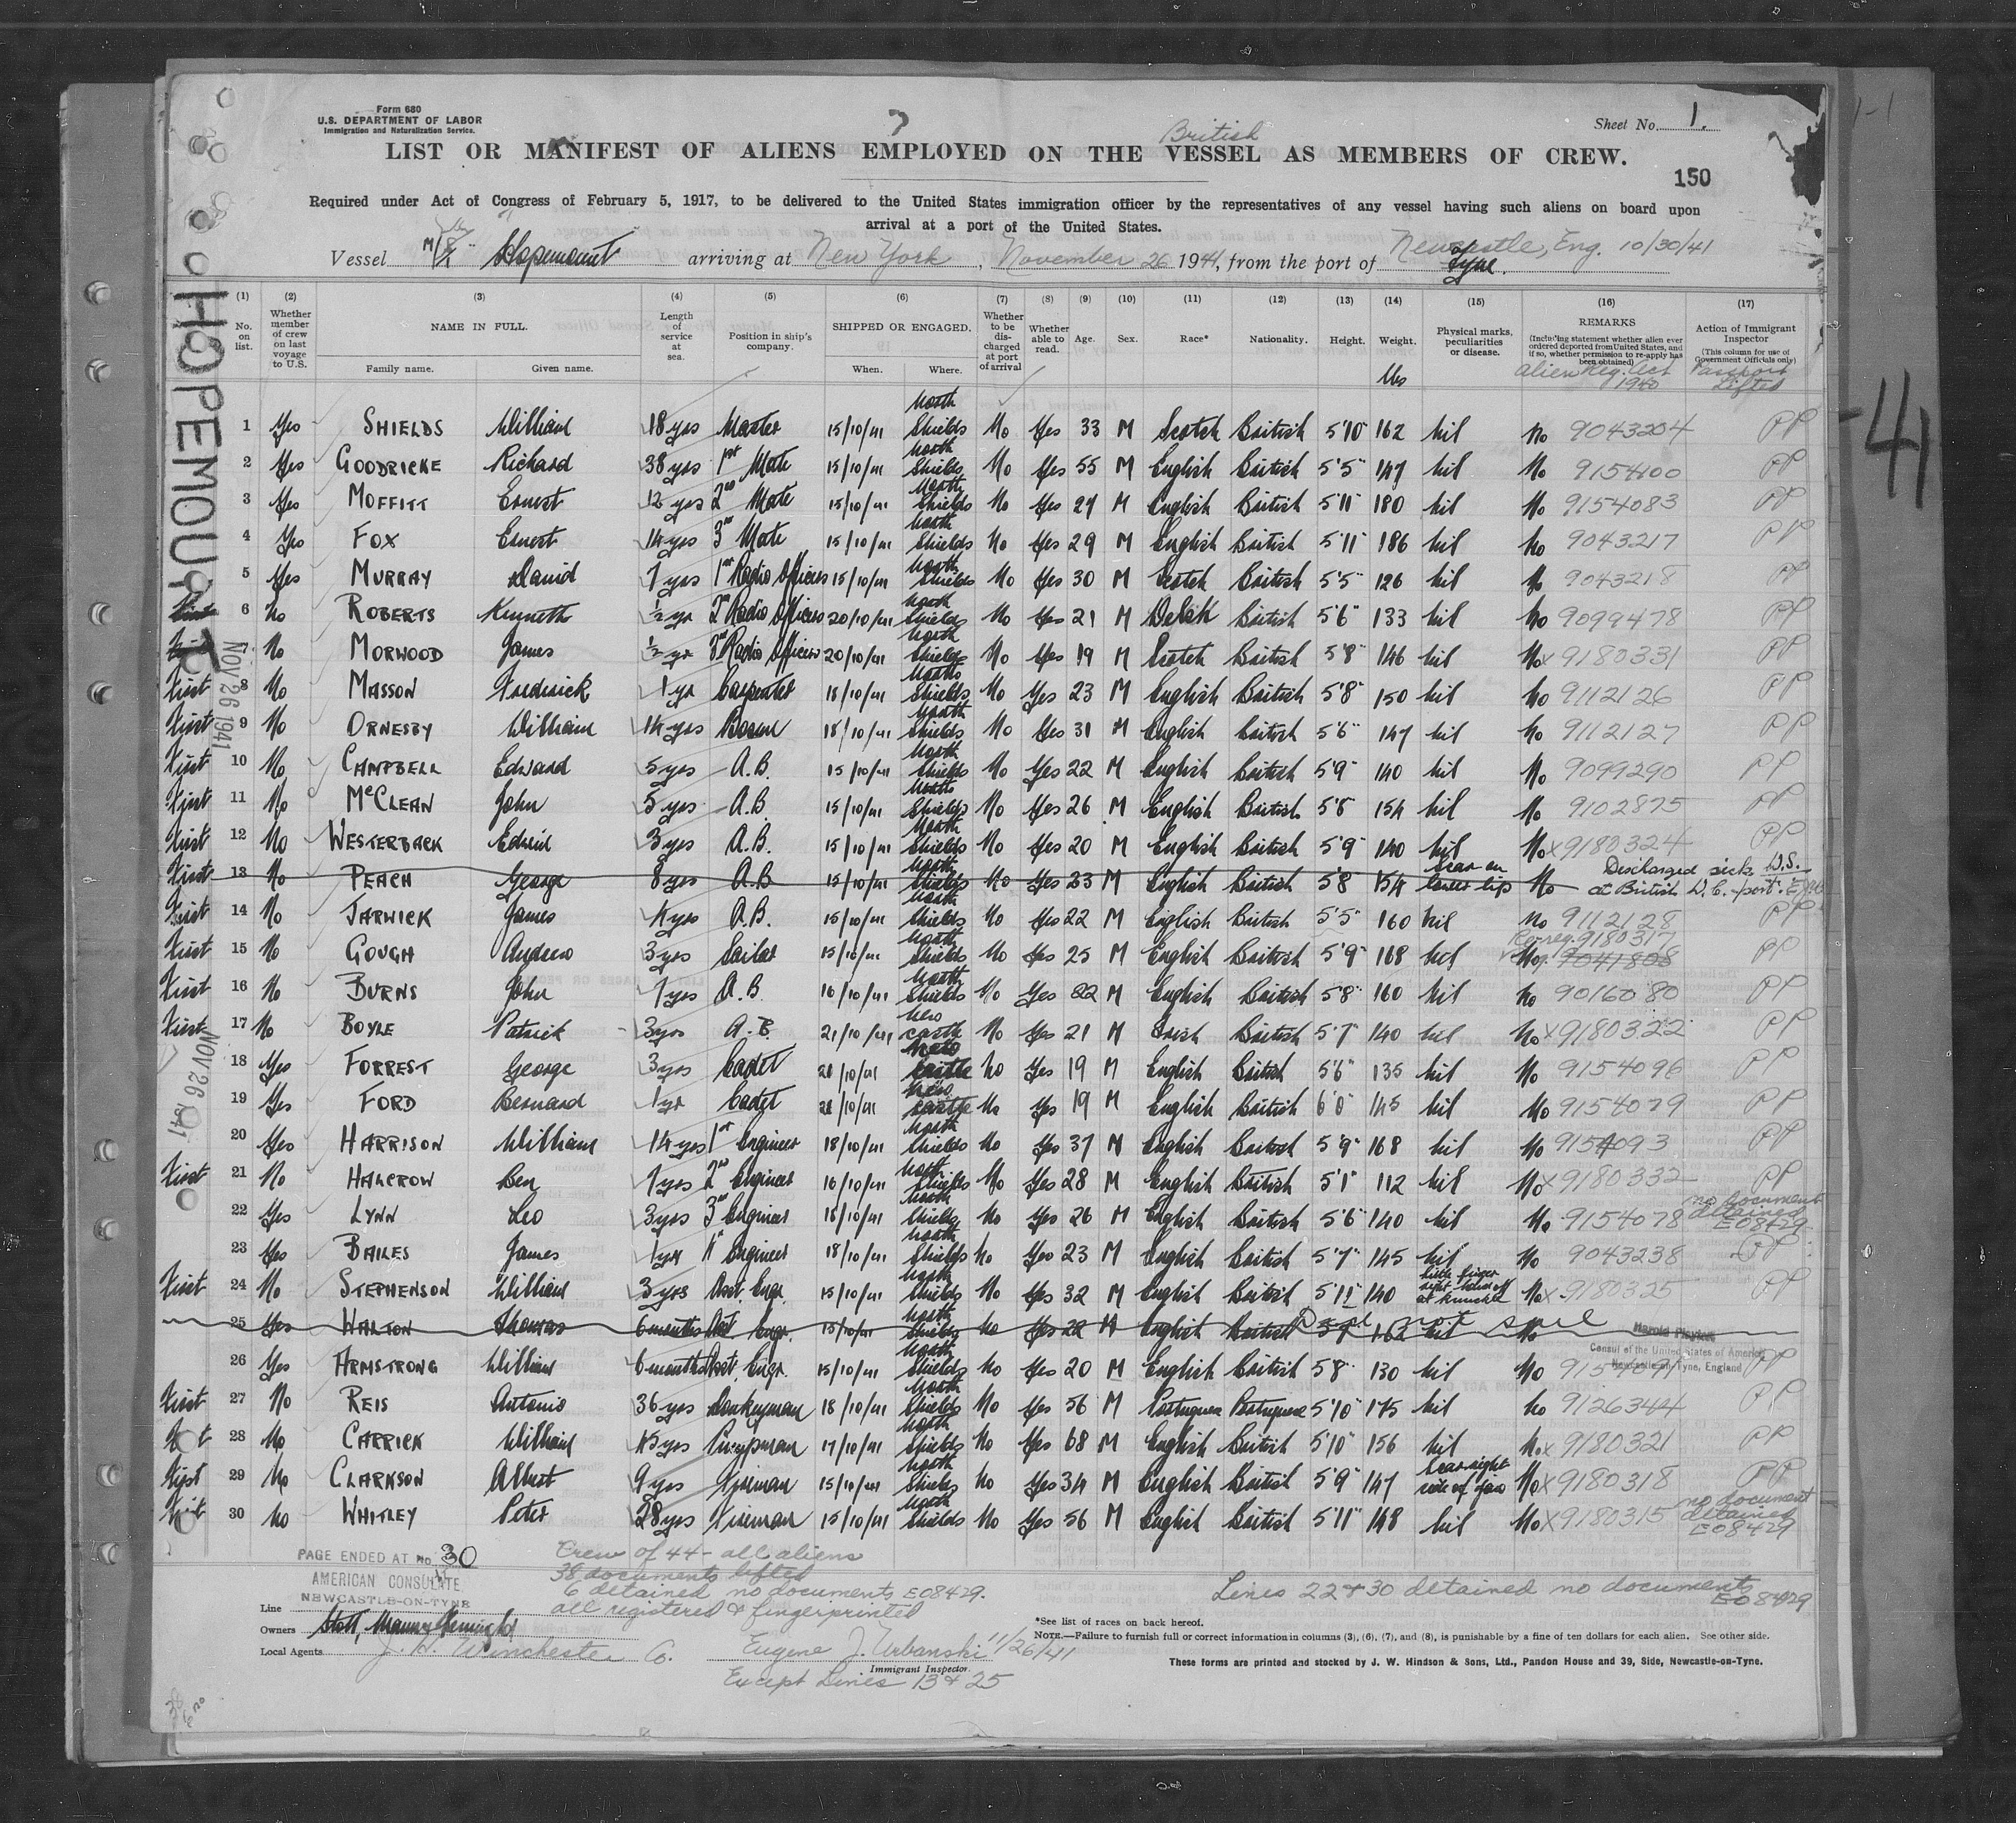 Form 680
U.S. DEPARTMENT OF LABOR
Immigration and Naturalization Service.
Sheet No. 1.
British
LIST OR MANIFEST OF ALIENS EMPLOYED ON THE VESSEL AS MEMBERS OF CREW.
150
Required under Act of Congress of February 5, 1917, to be delivered to the United States immigration officer by the representatives of any vessel having such aliens on board upon
arrival at a port of the United States.
Vessel Hopemount arriving at New York, November 26 1941, from the port of Newcastle, Eng. 10/30/41
Tyne.
HOPEMOUNT
NOV 26 1941
NOV 26 1941
-41
(1) (2) (3) (4) (5) (6) (7) (8) (9) (10) (11) (12) (13) (14) (15) (16) (17)
No. on list.
Whether member of crew on last voyage to U.S.
NAME IN FULL.
Family name. Given name.
Length of service at sea.
Position in ship's company.
SHIPPED OR ENGAGED.
When. Where.
Whether to be discharged at port of arrival
Whether able to read.
Age.
Sex.
Race*
Nationality.
Height.
Weight.
lbs
Physical marks, peculiarities or disease.
REMARKS
(Including statement whether alien ever ordered deported from United States, and if so, whether permission to re-apply has been obtained)
Alien Reg. Act 1940
Action of Immigrant Inspector
(This column for use of Government Officials only)
Passport Lifted
1 Yes SHIELDS William 18 yrs Master 15/10/41 North Shields No Yes 33 M Scotch British 5'10" 162 nil No 9043204 PP
2 Yes GOODRICKE Richard 38 yrs 1st Mate 15/10/41 North Shields No Yes 55 M English British 5'5" 147 nil No 9154100 PP
3 Yes MOFFITT Ernest 12 yrs 2nd Mate 15/10/41 North Shields No Yes 27 M English British 5'11" 180 nil No 9154083 PP
4 Yes FOX Ernest 14 yrs 3rd Mate 15/10/41 North Shields No Yes 29 M English British 5'11" 186 nil No 9043217 PP
5 Yes MURRAY David 7 yrs 1st Radio Officer 15/10/41 North Shields No Yes 30 M Scotch British 5'5" 126 nil No 9043218 PP
6 No ROBERTS Kenneth ½ yr 2nd Radio Officer 20/10/41 North Shields No Yes 21 M Welsh British 5'6" 133 nil No 9099478 PP
7 No MORWOOD James ½ yr 3rd Radio Officer 20/10/41 North Shields No Yes 19 M Scotch British 5'8" 146 nil No x 9180331 PP
First 8 No MASSON Frederick 1 yr Carpenter 18/10/41 North Shields No Yes 23 M English British 5'8" 150 nil No 9112126 PP
First 9 No ORNESBY William 14 yrs Bosun 18/10/41 North Shields No Yes 31 M English British 5'6" 147 nil No 9112127 PP
First 10 No CAMPBELL Edward 5 yrs A.B. 15/10/41 North Shields No Yes 22 M English British 5'9" 140 nil No 9099290 PP
First 11 No McCLEAN John 5 yrs A.B. 15/10/41 North Shields No Yes 26 M English British 5'8 154 nil No 9102825 PP
First 12 No WESTERBACK Edwin 3 yrs A.B. 15/10/41 North Shields No Yes 20 M English British 5'9 140 nil No x 9180324 PP
First 13 No PEACH George 8 yrs A.B 15/10/41 North Shields No Yes 23 M English British 5'8 154 Scar on lower lip No Discharged sick at British W.I. port.
First 14 No JARWICK James 4 yrs A.B. 15/10/41 North Shields No Yes 22 M English British 5'5" 160 nil No 9112128 PP
First 15 No GOUGH Andrew 3 yrs Sailor 15/10/41 North Shields No Yes 25 M English British 5'9" 168 nil No Re-reg. 9180317 9041808 PP
First 16 No BURNS John 7 yrs A.B. 16/10/41 North Shields No Yes 22 M English British 5'8" 160 nil No 9016080 PP
First 17 No BOYLE Patrick 3 yrs A.B. 21/10/41 New castle No Yes 21 M Irish British 5'7" 140 nil No x 9180322 PP
18 Yes FORREST George 3 yrs Cadet 21/10/41 New castle No Yes 19 M English British 5'6" 135 nil No 9154096 PP
19 Yes FORD Bernard 1 yr Cadet 21/10/41 New castle No Yes 19 M English British 6'0" 145 nil No 9154079 PP
20 Yes HARRISON William 14 yrs 1st Engineer 18/10/41 North Shields No Yes 37 M English British 5'9" 168 nil No 9154093 PP
First 21 No HALCROW Ben 7 yrs 2nd Engineer 16/10/41 North Shields No Yes 28 M English British 5'1" 112 nil No x 9180332 PP
22 Yes LYNN Leo 3 yrs 3rd Engineer 18/10/41 North Shields No Yes 26 M English British 5'6" 140 nil No 9154078 no document detained E08429
23 Yes BAILES James 1 yr 4th Engineer 18/10/41 North Shields No Yes 23 M English British 5'7" 145 nil No 9043238 PP
First 24 No STEPHENSON William 3 yrs Asst Engr. 15/10/41 North Shields No Yes 32 M English British 5'11" 140 little finger right hand off at knuckle No x 9180325 PP
25 Yes WALTON Thomas 6 months Asst Engr. 15/10/41 North Shields No Yes 22 M English British 162 nil No Did not sail
Harold Playter
Consul of the United States of America
Newcastle-on-Tyne, England
26 Yes ARMSTRONG William 6 months Asst. Engr. 15/10/41 North Shields No Yes 20 M English British 5'8" 130 nil No PP
First 27 No REIS Antonio 36 yrs Donkeyman 18/10/41 North Shields No Yes 56 M Portuguese Portuguese 5'10" 175 nil No 9126344 PP
First 28 No CARRICK William 45 yrs Pumpman 17/10/41 North Shields No Yes 68 M English British 5'10" 156 nil No x 9180321 PP
First 29 No CLARKSON Albert 9 yrs Fireman 15/10/41 North Shields No Yes 34 M English British 5'9" 147 Scar right side of jaw No x 9180318 PP
First 30 No WHITLEY Peter 28 yrs Fireman 15/10/41 North Shields No Yes 56 M English British 5'11" 148 nil No x 9180315 no document detained E08429
PAGE ENDED AT No. 30
AMERICAN CONSULATE
NEWCASTLE-ON-TYNE
Crew of 44 - all aliens
38 documents lifted
6 detained no documents E08429.
all registered & fingerprinted
Lines 22 & 30 detained no document
E08429
Line
Owners Stott, Mann & Fleming Ltd
Local Agents J. H. Winchester Co.
Eugene J. Urbanski 11/26/41
Immigrant Inspector.
Except Lines 13 & 25
*See list of races on back hereof.
NOTE.—Failure to furnish full or correct information in columns (3), (6), (7), and (8), is punishable by a fine of ten dollars for each alien. See other side.
These forms are printed and stocked by J. W. Hindson & Sons, Ltd., Pandon House and 39, Side, Newcastle-on-Tyne.